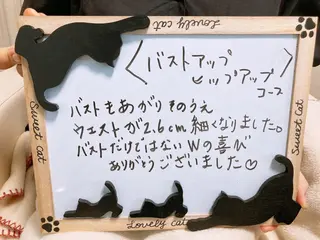 Lovely cat
〈バストアップ
ヒップアップ〉
コース
バストもあがりそのうえ
ウエストが2.6cm細くなりました。
バストだけではないWの喜び
ありがとうございました♡
Sweet Cat
Sweet Cat
Lovely Cat